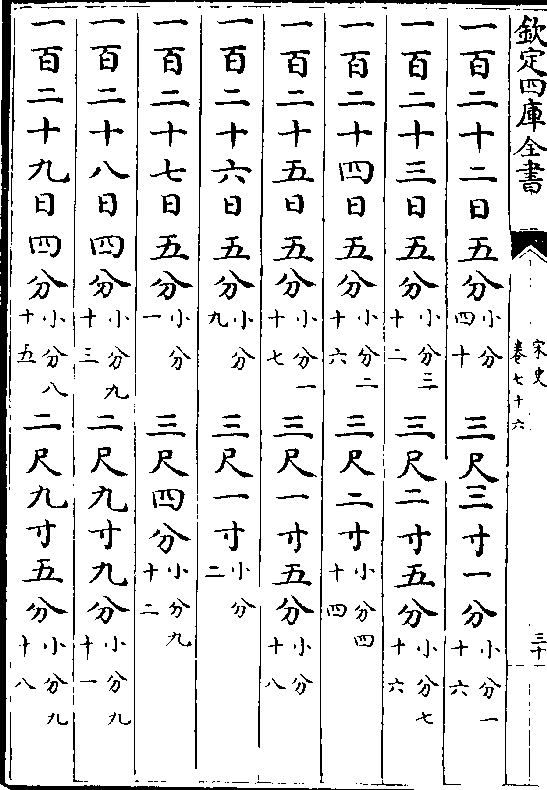 欽定四庫全書
宋史
卷七十六
三十
一百二十二日五分小分四十 三尺三寸一分小分一十六
一百二十三日五分小分三十二 三尺二寸五分小分七十六
一百二十四日五分小分二十六 三尺二寸小分四十四
一百二十五日五分小分一十七 三尺一寸五分小分十八
一百二十六日五分小分九 三尺一寸小分二
一百二十七日五分小分一 三尺四分小分九十二
一百二十八日四分小分九十三 二尺九寸九分小分九十一
一百二十九日四分小分八十五 二尺九寸五分小分九十八